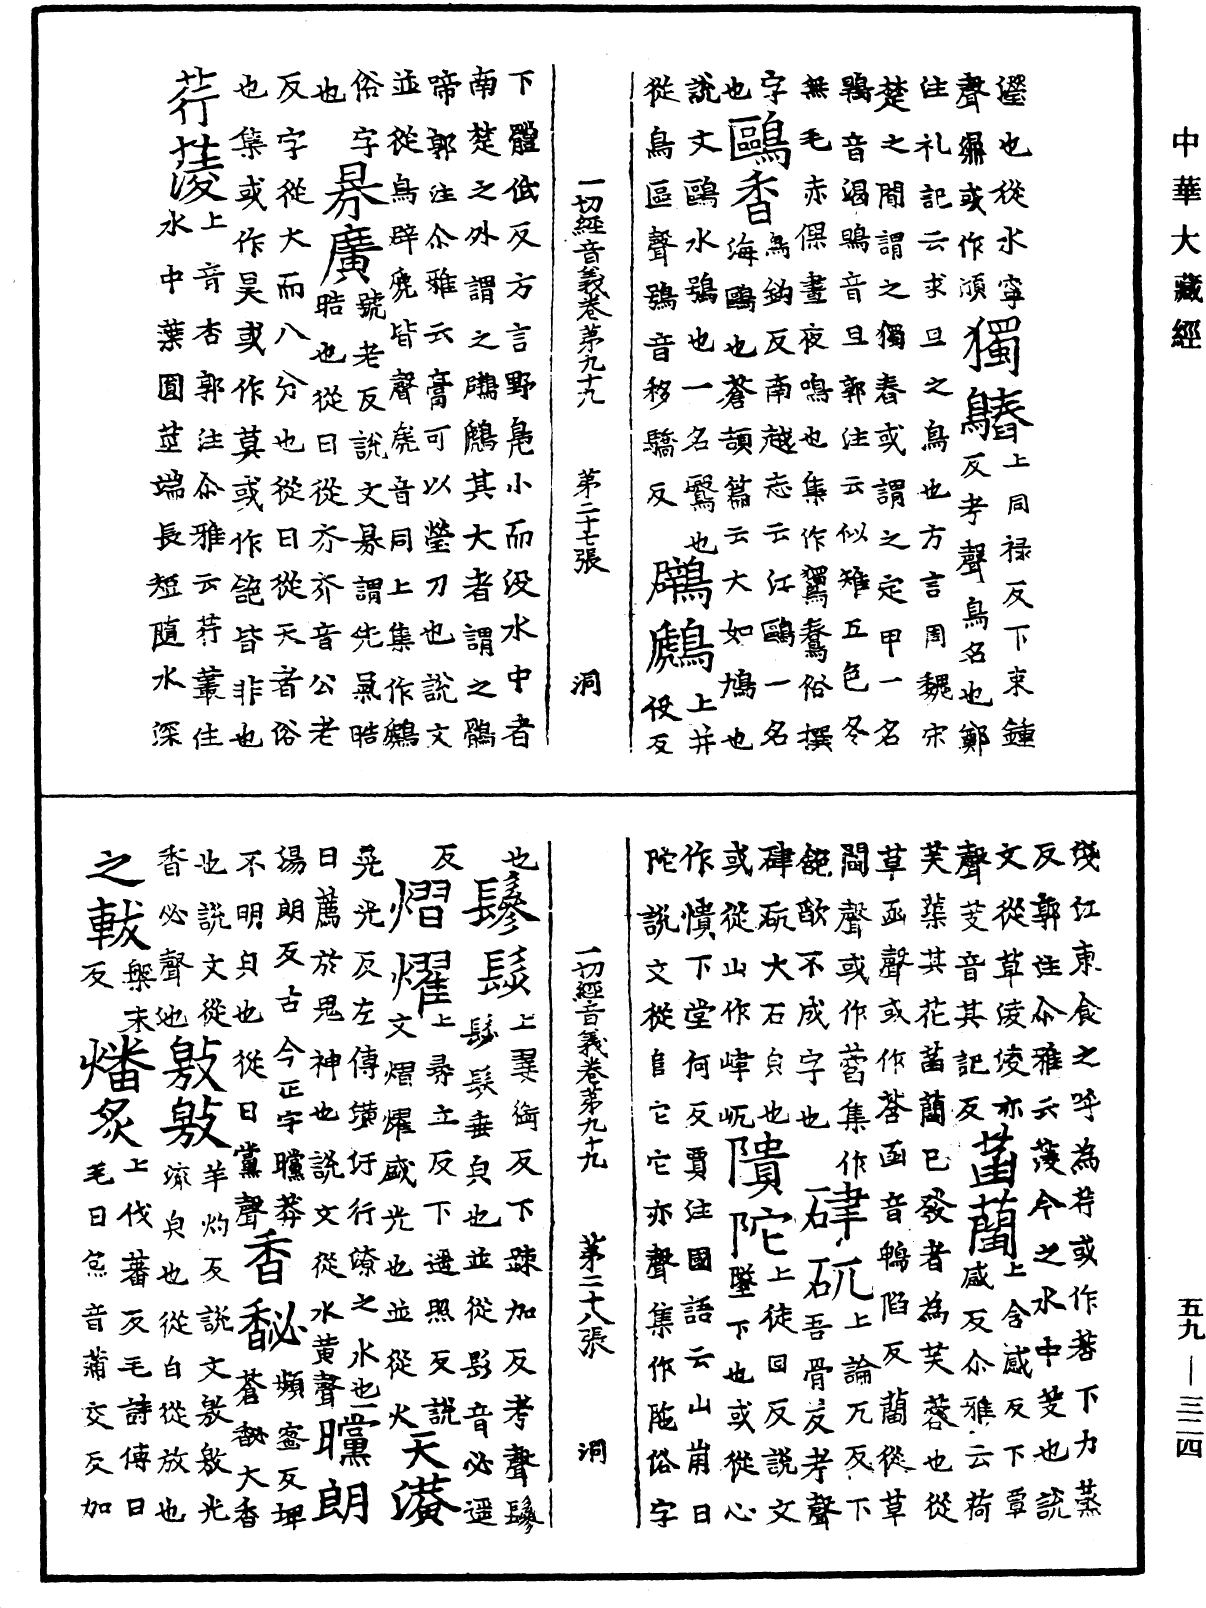 中華大藏經
瀴也從水寧
聲㵾或作濎獨鴦上同禄反下束鍾
反考聲鳥名也鄭
注礼記云求旦之鳥也方言周魏宋
楚之間謂之獨舂或謂之定甲一名
鶡音渴鴠音旦郭注云似雉五色冬
無毛赤倮晝夜鳴也集作鸀鶞俗撰
字鷗香烏鈎反南越志云江鷗一名
也海鷗也蒼頡篇云大如鳩也
說文鷗水鴞也一名鷖也
從鳥區聲鴞音移驕反鷿鷉上并
役反
一切經音義卷第九十九 第二十七張 洞
下體低反方言野鳧小而没水中者
南楚之外謂之鷿鷉其大者謂之鶻
啼郭注尒雅云膏可以瑩刀也說文
並從鳥辟虒皆聲虒音同上集作鷈
俗字昦廣號老反說文昦謂先氣晧
也晧也從日從夰夰音公老
反字從大而八分也從日從天者俗
也集或作昊或作莫或作皰皆非也
荇菨上音杏郭注尒雅云荇叢住
水中葉圓莖端長短隨水深
浅江東食之呼為荇或作莕下力蒸
反郭注尒雅云蔆今之水中芰也說
文從草淩淩亦菡䕞上含感反下覃
聲芰音其記反感反尒雅云荷
芙蕖其花菡䕞已發者為芙蓉也從
草函聲或作莟函音鵮陷反䕞從草
閻聲或作萏集作硉矹上論兀反下
皰歃不成字也吾骨反考聲
硉矹大石皃也隤陀上徒回反說文
或從山作㟁屼墜下也或從心
作憒下堂何反賈注國語云山崩曰
陀說文從𨸏它它亦聲集作陁俗字
一切經音義卷第九十九 第二十八張 洞
也鬖髿上婁銜反下踈加反考聲鬖
髿髮垂皃也並從髟音必遥
反熠燿上尋立反下遥照反說
文熠燿盛光也並從火天潢
晃光反左傳潢汙行潦之水也
日薦於鬼神也說文從水黃聲曭朗
湯朗反古今正字曭莽
不明皃也從日黨聲香馝頻蜜反埤
蒼馝大香
也說文從香必聲也敫敫羊灼反說文敫敫光
流皃也從白從放也
之軷盤末反燔炙上伐蕃反毛詩傳曰
毛曰炰音蒲交反加
五九—三二四